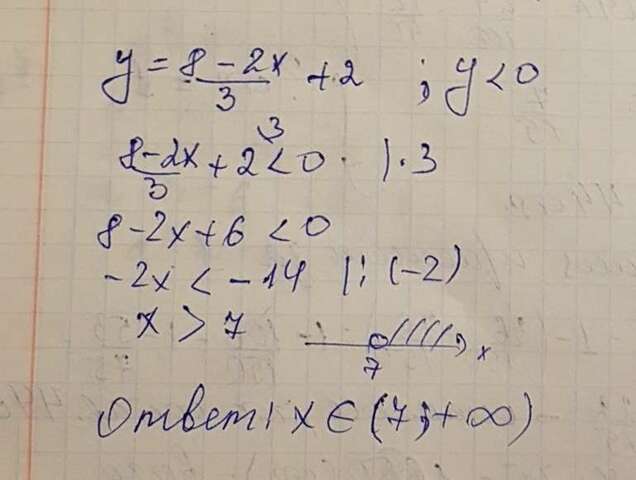 y = (8 - 2x)/3 + 2 ; y < 0
(8 - 2x)/3 + 2 \3 < 0 | · 3
8 - 2x + 6 < 0
-2x < -14 | : (-2)
x > 7
7 x
Ответ: x ∈ (7; +∞)